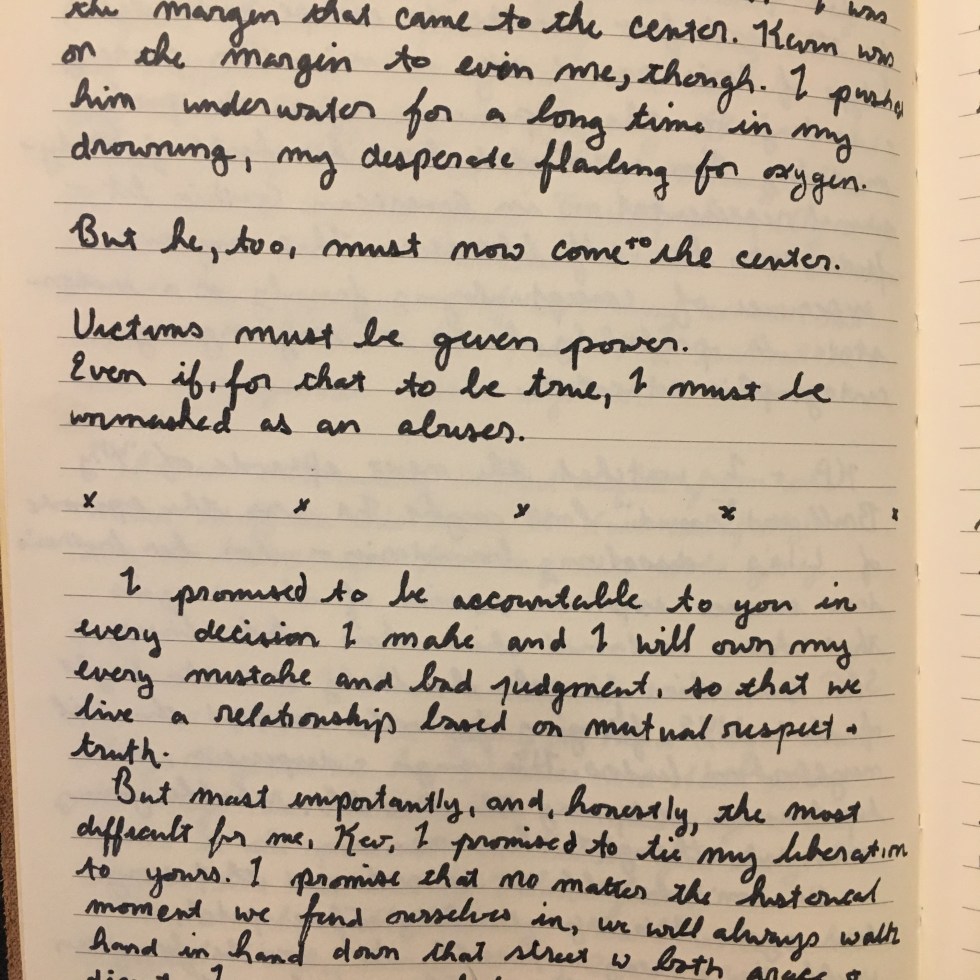 the margin that came to the center. Kevin was
on the margin to even me, though. I pushed
him underwater for a long time in my
drowning, my desperate flailing for oxygen.
But he, too, must now come to the center.
Victims must be given power.
Even if, for that to be true, I must be
unmasked as an abuser.
x x x x x
I promised to be accountable to you in
every decision I make and I will own my
every mistake and bad judgment, so that we
live a relationship based on mutual respect +
truth.
But most importantly, and, honestly, the most
difficult for me, Kev, I promised to tie my liberation
to yours. I promise that no matter the historical
moment we find ourselves in, we will always walk
hand in hand down that street w both